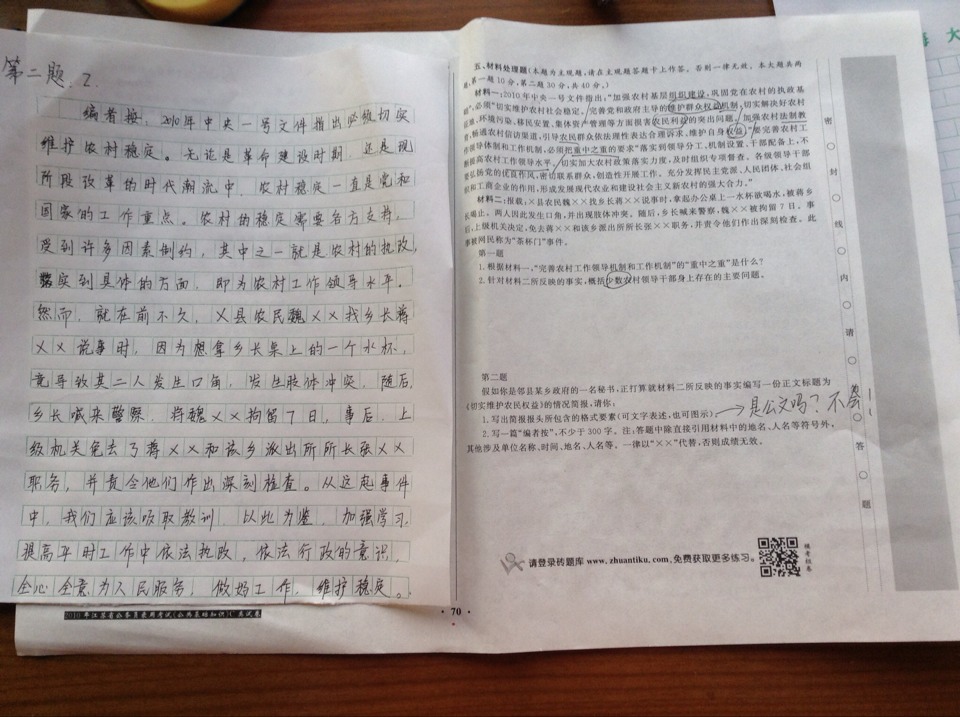 第二题.2.
编者按:2010年中央一号文件指出必须切实
维护农村稳定。无论是革命建设时期,还是现
阶段改革的时代潮流中,农村稳定一直是党和
国家的工作重点。农村的稳定需要各方支持,
受到许多因素制约,其中之一就是农村的执政,
落实到具体的方面,即为农村工作领导水平。
然而,就在前不久,×县农民魏××找乡长蒋
××说事时,因为想拿乡长桌上的一个水杯,
竟导致其二人发生口角,发生肢体冲突,随后,
乡长喊来警察,将魏××拘留7日,事后,上
级机关免去了蒋××和该乡派出所所长张××
职务,并责令他们作出深刻检查。从这起事件
中,我们应该吸取教训,以此为鉴,加强学习,
提高平时工作中依法执政,依法行政的意识,
全心全意为人民服务,做好工作,维护稳定。
2010年江苏省公务员录用考试《公共基础知识》C类试卷
五、材料处理题(本题为主观题,请在主观题答题卡上作答。否则一律无效。本大题共两
题,第一题10分,第二题30分,共40分。)
材料一:2010年中央一号文件指出:“加强农村基层组织建设,巩固党在农村的执政基
础”,必须“切实维护农村社会稳定。完善党和政府主导的维护群众权益机制,切实解决好农村
征地、环境污染、移民安置、集体资产管理等方面损害农民利益的突出问题。加强农村法制教
育,畅通农村信访渠道,引导农民群众依法理性表达合理诉求、维护自身权益。”要完善农村工
作领导体制和工作机制,必须把重中之重的要求“落实到领导分工、机制设置、干部配备上,不
断提高农村工作领导水平。切实加大农村政策落实力度,及时组织专项督查。各级领导干部
要弘扬党的优良作风,密切联系群众,创造性开展工作。充分发挥民主党派、人民团体、社会组
织和工商企业的作用,形成发展现代农业和建设社会主义新农村的强大合力。”
材料二:报载,×县农民魏××找乡长蒋××说事时,拿起办公桌上一水杯欲喝水,被蒋乡
长喝止。两人因此发生口角,并出现肢体冲突。随后,乡长喊来警察,魏××被拘留7日。事
后,上级机关决定,免去蒋××和该乡派出所所长张××职务,并责令他们作出深刻检查。此
事被网民称为“茶杯门”事件。
第一题
1.根据材料一,“完善农村工作领导机制和工作机制”的“重中之重”是什么?
2.针对材料二所反映的事实,概括少数农村领导干部身上存在的主要问题。
第二题
假如你是邻县某乡政府的一名秘书,正打算就材料二所反映的事实编写一份正文标题为
《切实维护农民权益》的情况简报,请你:
1.写出简报报头所包含的格式要素(可文字表述,也可图示)→是公文吗?不会!!
2.写一篇“编者按”,不少于300字。注:答题中除直接引用材料中的地名、人名等符号外,
其他涉及单位名称、时间、地名、人名等。一律以“××”代替,否则成绩无效。
请登录砖题库 www.zhuantiku.com,免费获取更多练习。
·70·
密○封○线○内○请○勿○答○题